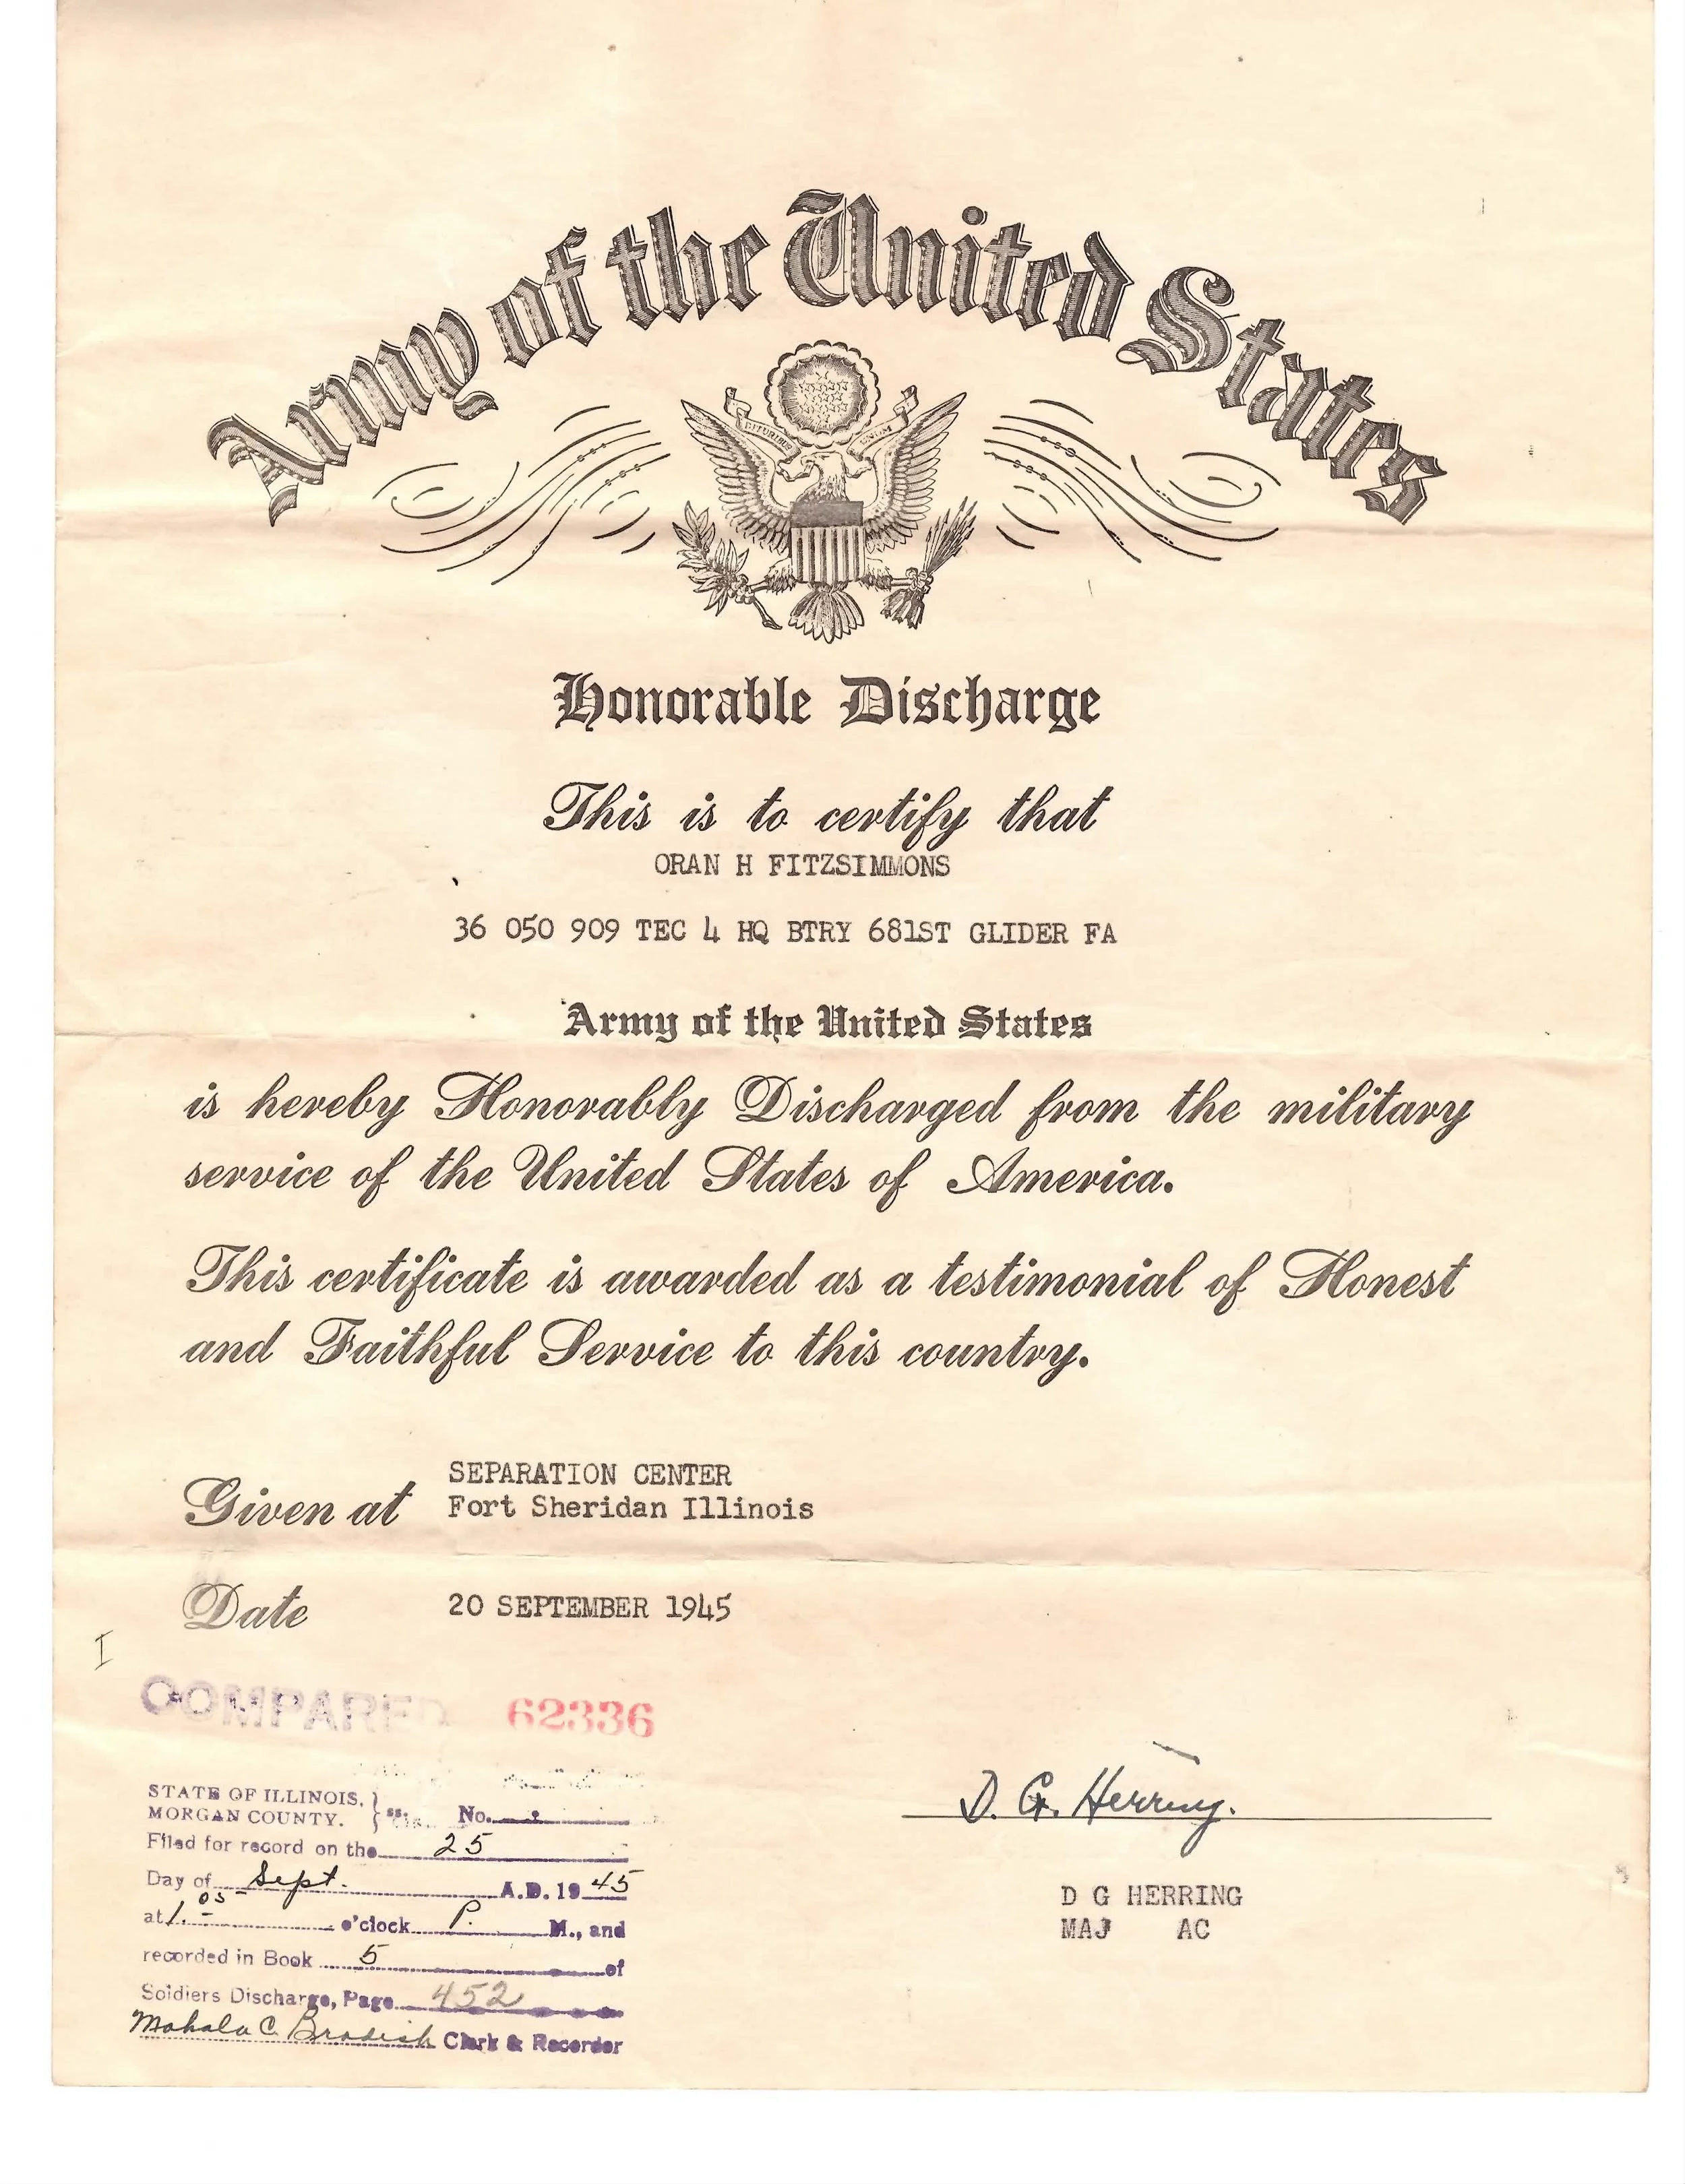 Army of the United States
E PLURIBUS UNUM
Honorable Discharge
This is to certify that
ORAN H FITZSIMMONS
36 050 909 TEC 4 HQ BTRY 681ST GLIDER FA
Army of the United States
is hereby Honorably Discharged from the military
service of the United States of America.
This certificate is awarded as a testimonial of Honest
and Faithful Service to this country.
Given at SEPARATION CENTER
Fort Sheridan Illinois
Date 20 SEPTEMBER 1945
I
COMPARED 62336
STATE OF ILLINOIS, } ss. No.
MORGAN COUNTY.
Filed for record on the 25
Day of Sept. A.D. 19 45
at 1:05 o'clock P. M., and
recorded in Book 5 of
Soldiers Discharge, Page 452
Mahala C. Bradish Clerk & Recorder
D. G. Herring.
D G HERRING
MAJ AC